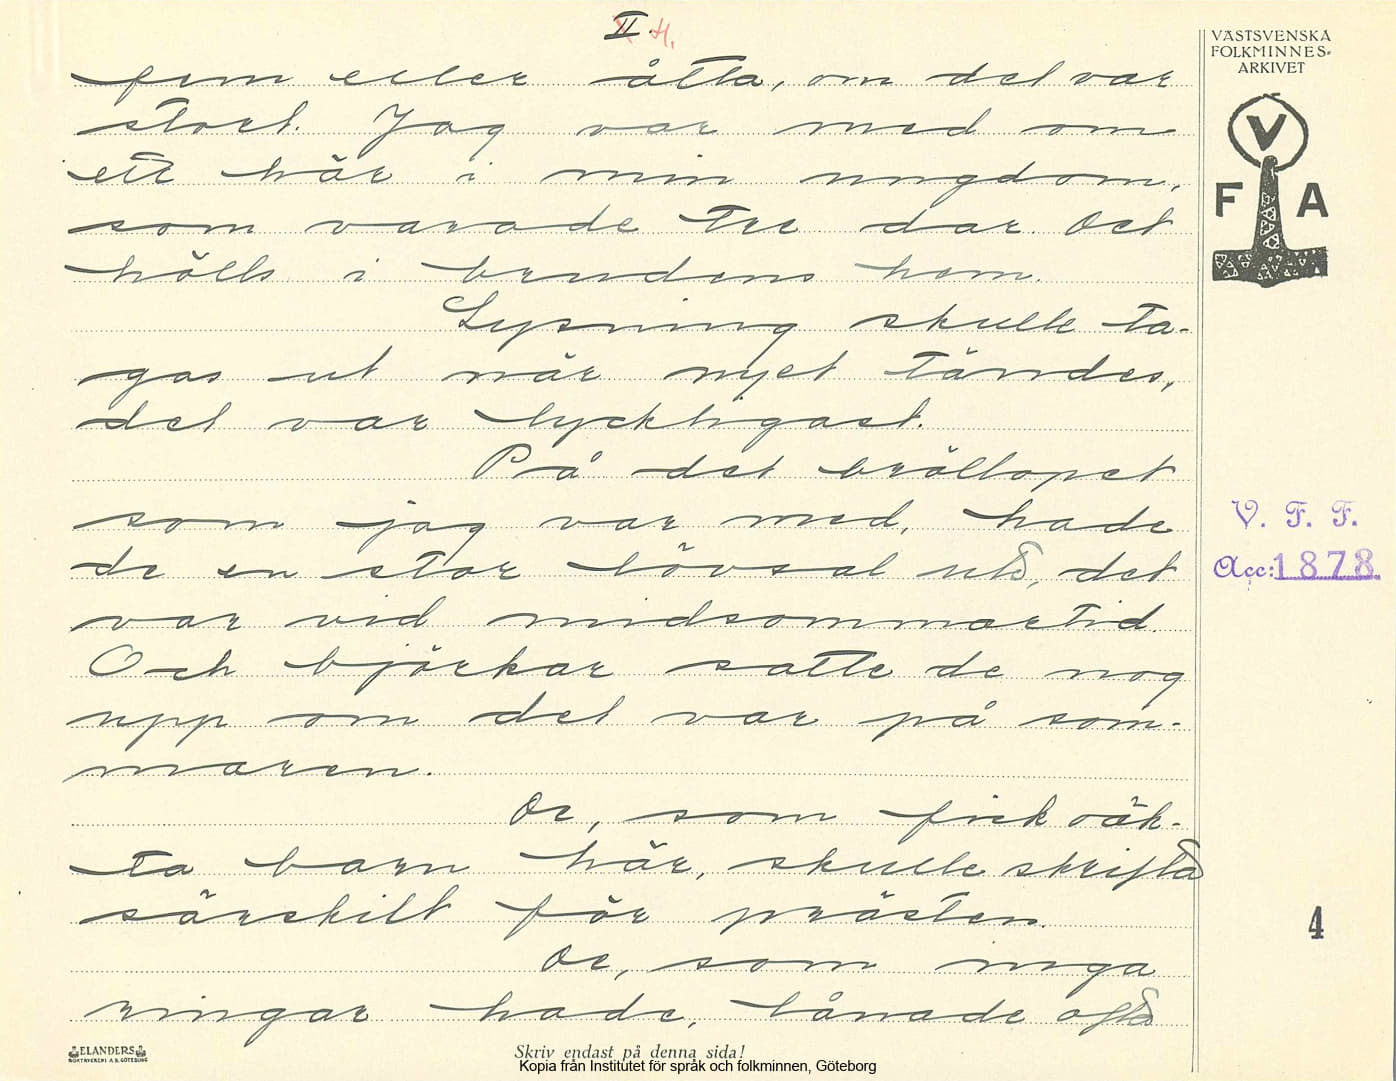 II. 4.
VÄSTSVENSKA
FOLKMINNES-
ARKIVET
V
F A
fem eller åtta, om det var
stort. Jag var med om
ett här i min ungdom,
som varade tre dar. Det
hölls i brudens hem.
Lysning skulle ta-
gas ut när nyet tändes,
det var lyckligast.
På det bröllopet
som jag var med, hade
de en stor lövsal ute, det
var vid midsommartid.
Och björkar satte de nog
upp om det var på som-
maren.
De, som fick oäk-
ta barn här, skulle skrifta
särskilt för prästen.
De, som inga
ringar hade, lånade ofta
V. F. F.
Acc: 1878
4
ELANDERS
BOKTRYCKERI A.B. GÖTEBORG
Skriv endast på denna sida!
Kopia från Institutet för språk och folkminnen, Göteborg